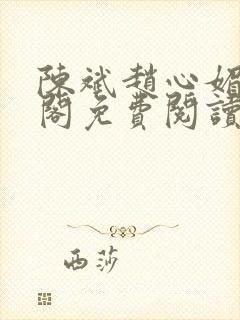 陳斌趙心媚
閣免費閱讀
西莎